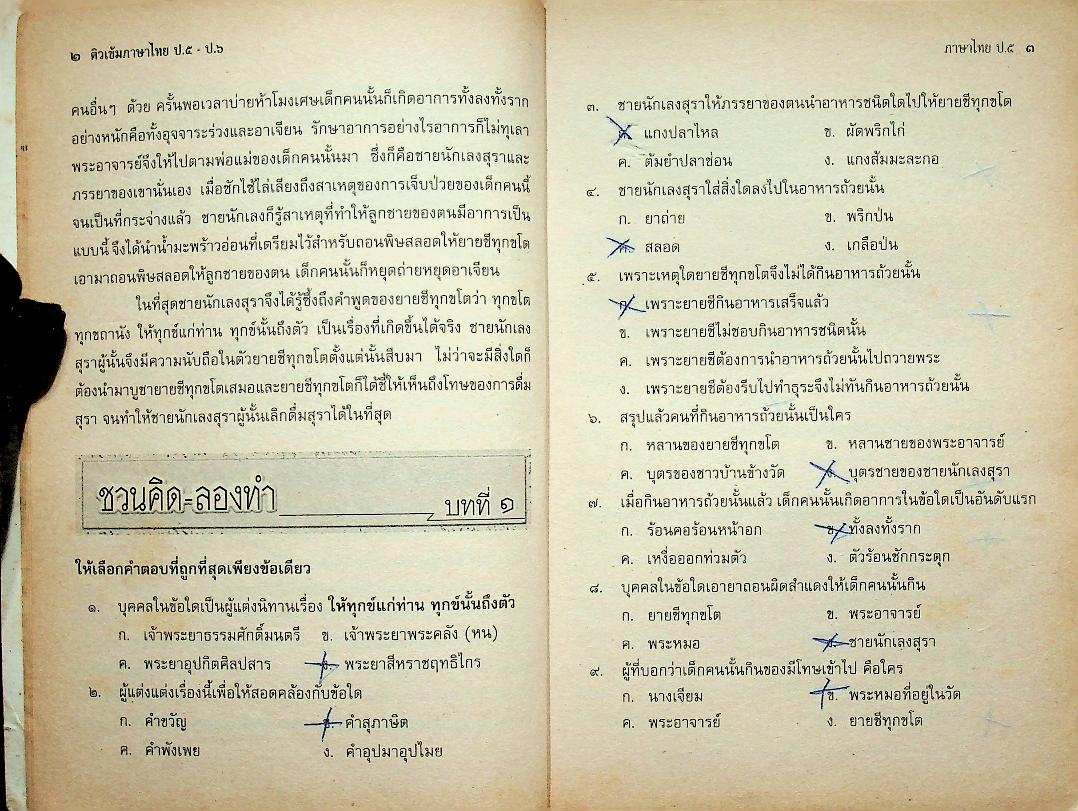 ๒ ติวเข้มภาษาไทย ป.๕ - ป.๖
คนอื่นๆ ด้วย ครั้นพอเวลาบ่ายห้าโมงเศษเด็กคนนั้นก็เกิดอาการทั้งลงทั้งราก
อย่างหนักคือทั้งอุจจาระร่วงและอาเจียน รักษาอาการอย่างไรอาการก็ไม่ทุเลา
พระอาจารย์จึงให้ไปตามพ่อแม่ของเด็กคนนั้นมา ซึ่งก็คือชายนักเลงสุราและ
ภรรยาของเขานั่นเอง เมื่อซักไซ้ไล่เลียงถึงสาเหตุของการเจ็บป่วยของเด็กคนนี้
จนเป็นที่กระจ่างแล้ว ชายนักเลงก็รู้สาเหตุที่ทำให้ลูกชายของตนมีอาการเป็น
แบบนี้ จึงได้นำน้ำมะพร้าวอ่อนที่เตรียมไว้สำหรับถอนพิษสลอดให้ยายชีทุกขโต
เอามาถอนพิษสลอดให้ลูกชายของตน เด็กคนนั้นก็หยุดถ่ายหยุดอาเจียน
ในที่สุดชายนักเลงสุราจึงได้รู้ซึ้งถึงคำพูดของยายชีทุกขโตว่า ทุกขโต
ทุกขถานัง ให้ทุกข์แก่ท่าน ทุกข์นั้นถึงตัว เป็นเรื่องที่เกิดขึ้นได้จริง ชายนักเลง
สุราผู้นั้นจึงมีความนับถือในตัวยายชีทุกขโตตั้งแต่นั้นสืบมา ไม่ว่าจะมีสิ่งใดก็
ต้องนำมาบูชายายชีทุกขโตเสมอและยายชีทุกขโตก็ได้ชี้ให้เห็นถึงโทษของการดื่ม
สุรา จนทำให้ชายนักเลงสุราผู้นั้นเลิกดื่มสุราได้ในที่สุด
ชวนคิด-ลองทำ บทที่ ๑
ให้เลือกคำตอบที่ถูกที่สุดเพียงข้อเดียว
๑. บุคคลในข้อใดเป็นผู้แต่งนิทานเรื่อง ให้ทุกข์แก่ท่าน ทุกข์นั้นถึงตัว
ก. เจ้าพระยาธรรมศักดิ์มนตรี ข. เจ้าพระยาพระคลัง (หน)
ค. พระยาอุปกิตศิลปสาร ง. พระยาสีหราชฤทธิไกร
๒. ผู้แต่งแต่งเรื่องนี้เพื่อให้สอดคล้องกับข้อใด
ก. คำขวัญ ข. คำสุภาษิต
ค. คำพังเพย ง. คำอุปมาอุปไมย
ภาษาไทย ป.๕ ๓
๓. ชายนักเลงสุราให้ภรรยาของตนนำอาหารชนิดใดไปให้ยายชีทุกขโต
ก. แกงปลาไหล ข. ผัดพริกไก่
ค. ต้มยำปลาช่อน ง. แกงส้มมะละกอ
๔. ชายนักเลงสุราใส่สิ่งใดลงไปในอาหารถ้วยนั้น
ก. ยาถ่าย ข. พริกป่น
ค. สลอด ง. เกลือป่น
๕. เพราะเหตุใดยายชีทุกขโตจึงไม่ได้กินอาหารถ้วยนั้น
ก. เพราะยายชีกินอาหารเสร็จแล้ว
ข. เพราะยายชีไม่ชอบกินอาหารชนิดนั้น
ค. เพราะยายชีต้องการนำอาหารถ้วยนั้นไปถวายพระ
ง. เพราะยายชีต้องรีบไปทำธุระจึงไม่ทันกินอาหารถ้วยนั้น
๖. สรุปแล้วคนที่กินอาหารถ้วยนั้นเป็นใคร
ก. หลานของยายชีทุกขโต ข. หลานชายของพระอาจารย์
ค. บุตรของชาวบ้านข้างวัด ง. บุตรชายของชายนักเลงสุรา
๗. เมื่อกินอาหารถ้วยนั้นแล้ว เด็กคนนั้นเกิดอาการในข้อใดเป็นอันดับแรก
ก. ร้อนคอร้อนหน้าอก ข. ทั้งลงทั้งราก
ค. เหงื่อออกท่วมตัว ง. ตัวร้อนชักกระตุก
๘. บุคคลในข้อใดเอายาถอนผิดสำแดงให้เด็กคนนั้นกิน
ก. ยายชีทุกขโต ข. พระอาจารย์
ค. พระหมอ ง. ชายนักเลงสุรา
๙. ผู้ที่บอกว่าเด็กคนนั้นกินของมีโทษเข้าไป คือใคร
ก. นางเจียม ข. พระหมอที่อยู่ในวัด
ค. พระอาจารย์ ง. ยายชีทุกขโต